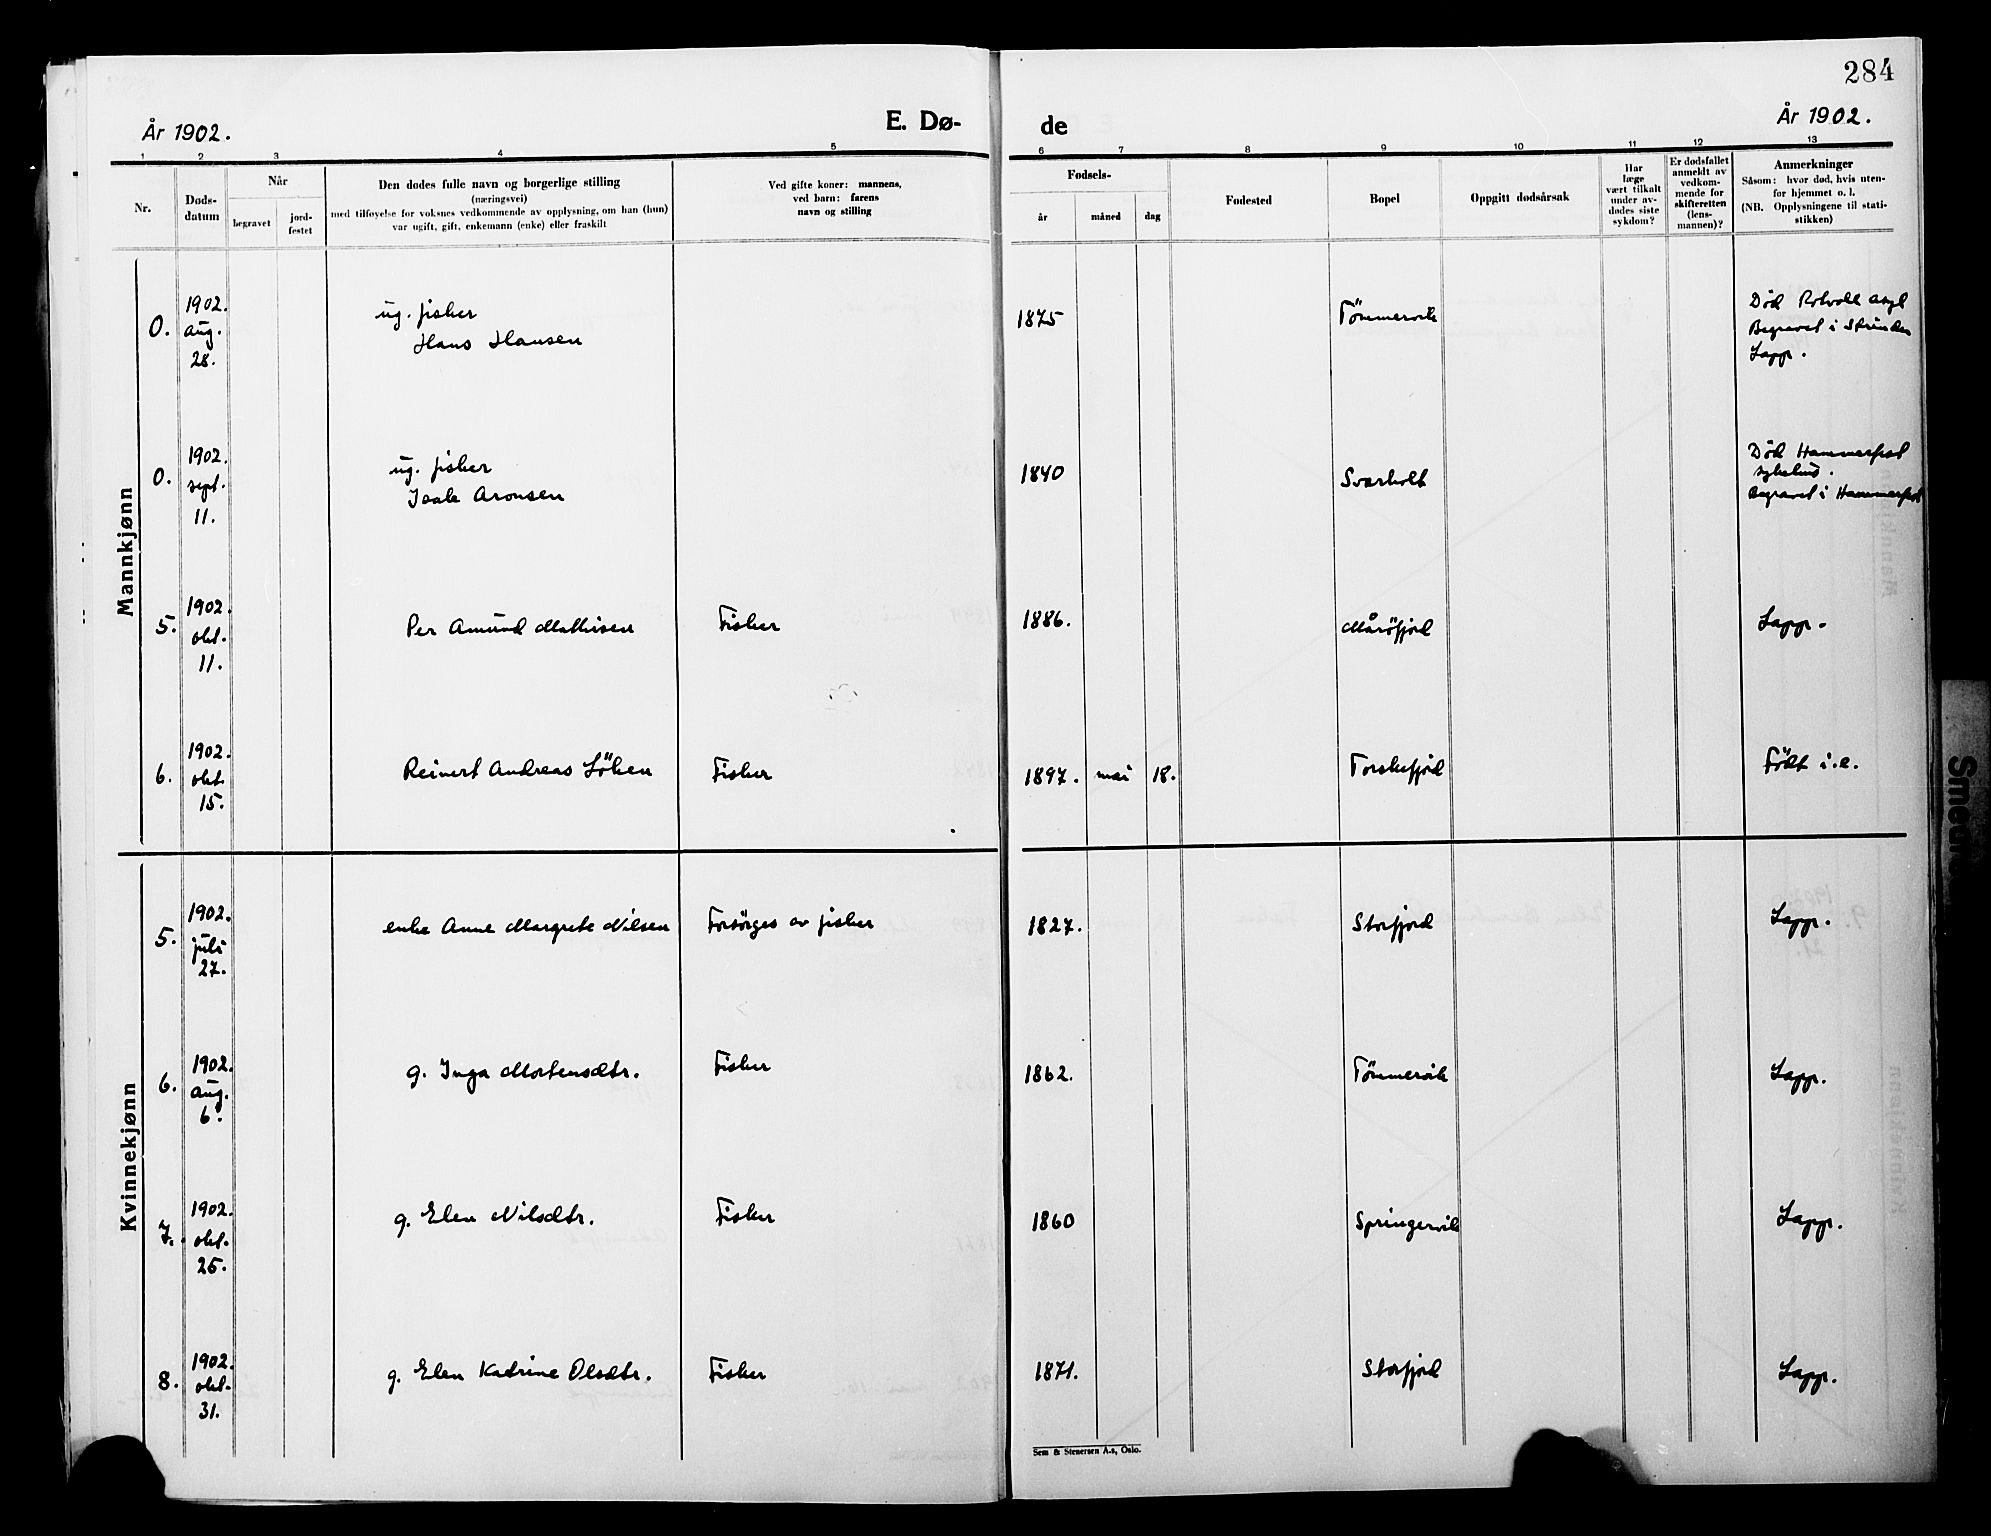 284
År 1902.
E. Dø-
de
År 1902.
1 2 3 4 5 6 7 8 9 10 11 12 13
Nr.
Døds-
datum
Når
begravet
jord-
festet
Den dødes fulle navn og borgerlige stilling
(næringsvei)
med tilføyelse for voksnes vedkommende av opplysning, om han (hun)
var ugift, gift, enkemann (enke) eller fraskilt
Ved gifte koner: mannens,
ved barn: farens
navn og stilling
Fødsels-
år
måned
dag
Fødested
Bopel
Oppgitt dødsårsak
Har
læge
vært tilkalt
under av-
dødes siste
sykdom?
Er dødsfallet
anmeldt av
vedkom-
mende for
skifteretten
(lens-
mannen)?
Anmerkninger
Såsom: hvor død, hvis uten-
for hjemmet o. l.
(NB. Opplysningene til stati-
stikken)
Mannkjønn
0.
1902.
aug.
28.
ug. fisker
Hans Hansen
1875
Tömmervik
Död Rotvoll asyl
Begravet i Strinden
Lapp.
0.
1902.
sept.
11.
ug. fisker
Isak Aronsen
1840
Svarholt
Död Hammerfest
sykehus.
Begravet i Hammerfest
5.
1902.
okt.
11.
Per Amund Mathisen
Fisker
1886.
Måröfjord
Lapp.
6.
1902.
okt.
15.
Reinert Andreas Löken
Fisker
1897. mai 18.
Torskefjord
Född i.e.
Kvinnekjønn
5.
1902.
juli
27.
enke Anne Margrete Nilsen
Forsörges av fisker
1827.
Storfjord
Lapp.
6.
1902.
aug.
6.
g. Inga Mortensdtr.
Fisker
1862.
Tömmervik
Lapp.
7.
1902.
okt.
25.
g. Elen Nilsdtr.
Fisker
1860
Springervik
Lapp.
8.
1902.
okt.
31.
g. Elen Katrine Olsdtr.
Fisker
1871.
Storfjord
Lapp.
Sem & Stenersen A.s, Oslo.